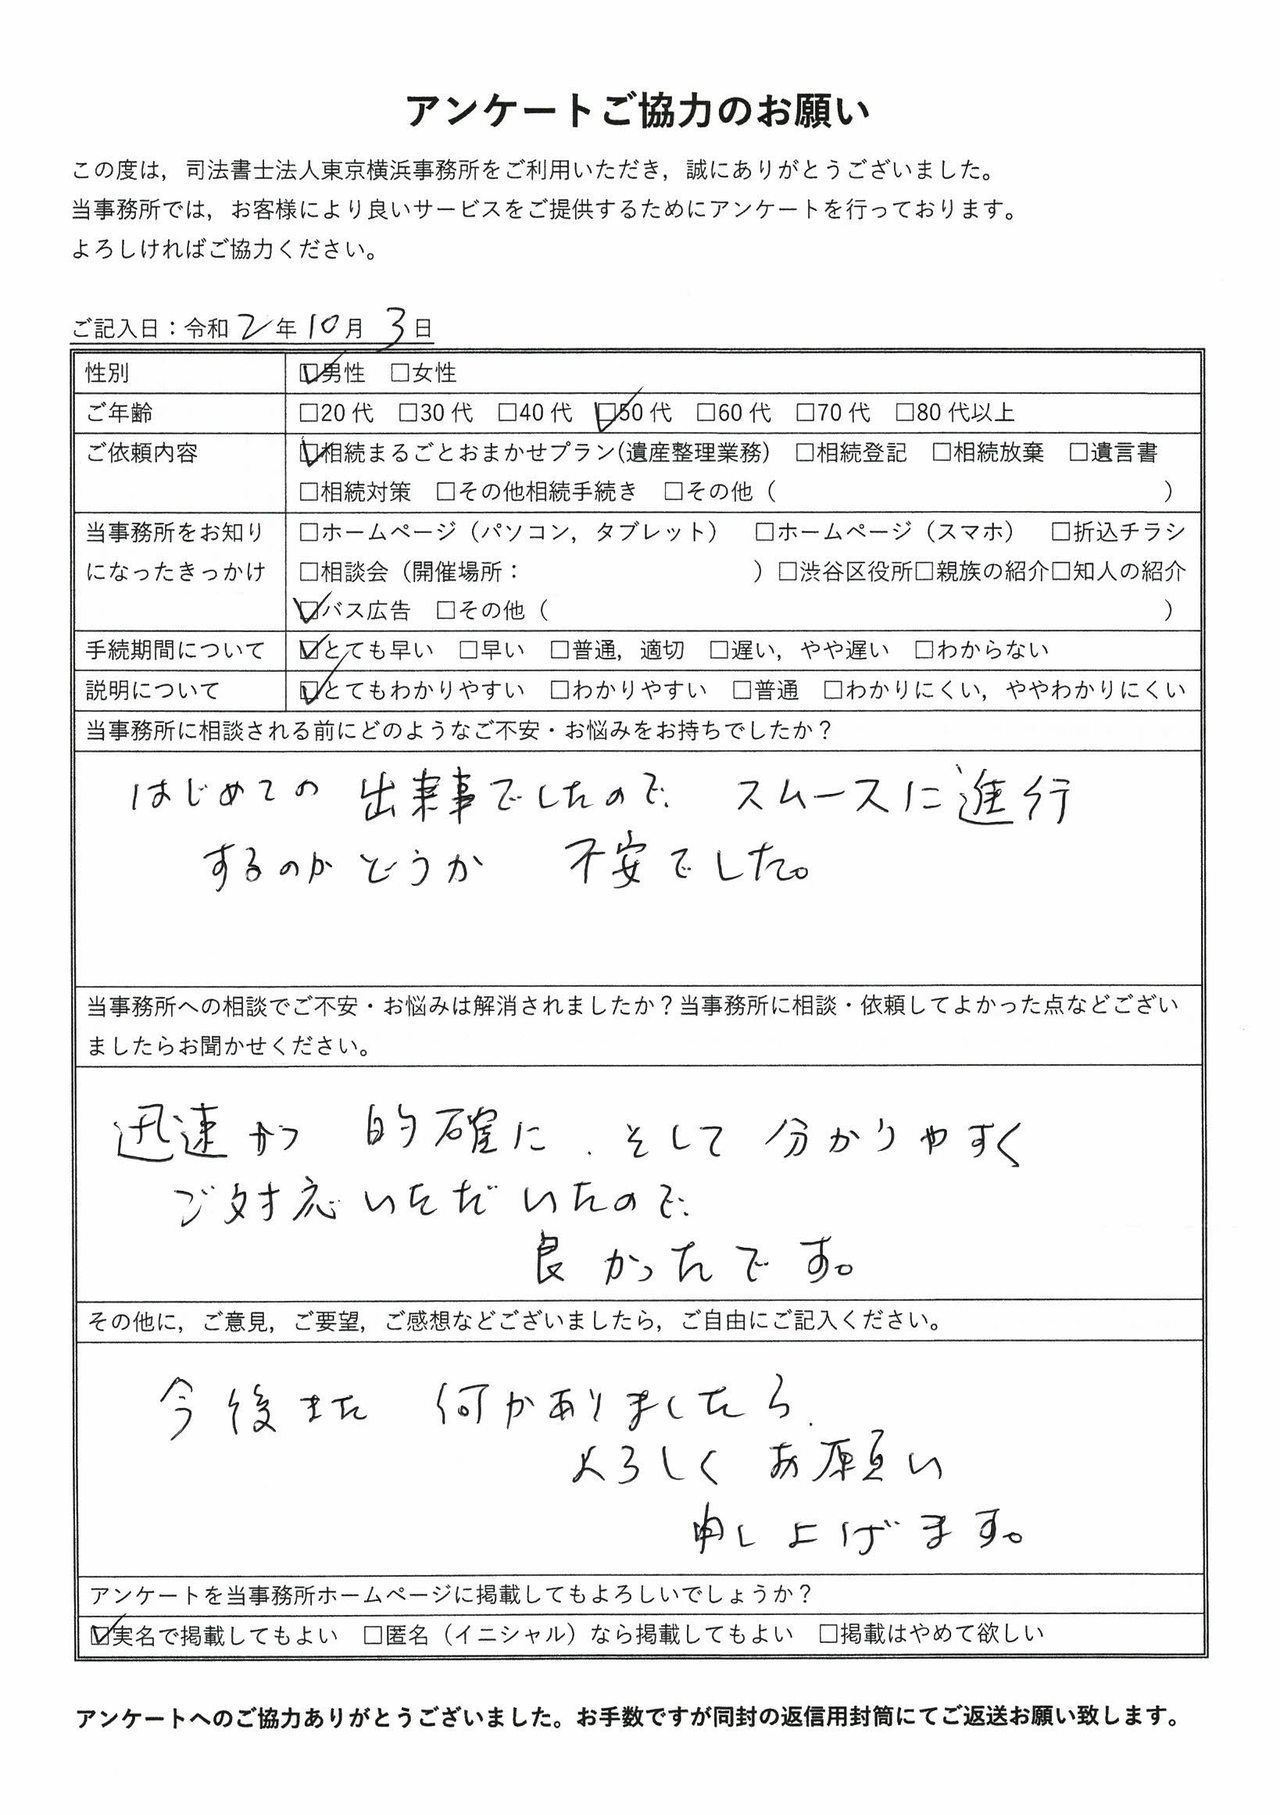 アンケートご協力のお願い
この度は，司法書士法人東京横浜事務所をご利用いただき，誠にありがとうございました。
当事務所では，お客様により良いサービスをご提供するためにアンケートを行っております。
よろしければご協力ください。
ご記入日：令和 2 年 10 月 3 日
性別 ☑男性 □女性
ご年齢 □20代 □30代 □40代 ☑50代 □60代 □70代 □80代以上
ご依頼内容 ☑相続まるごとおまかせプラン(遺産整理業務) □相続登記 □相続放棄 □遺言書
□相続対策 □その他相続手続き □その他（ ）
当事務所をお知り □ホームページ（パソコン，タブレット） □ホームページ（スマホ） □折込チラシ
になったきっかけ □相談会（開催場所： ）□渋谷区役所□親族の紹介□知人の紹介
☑バス広告 □その他（ ）
手続期間について ☑とても早い □早い □普通，適切 □遅い，やや遅い □わからない
説明について ☑とてもわかりやすい □わかりやすい □普通 □わかりにくい，ややわかりにくい
当事務所に相談される前にどのようなご不安・お悩みをお持ちでしたか？
はじめての 出来事でしたので、 スムースに進行
するのかどうか 不安でした。
当事務所への相談でご不安・お悩みは解消されましたか？当事務所に相談・依頼してよかった点などござい
ましたらお聞かせください。
迅速かつ 的確に、そして 分かりやすく
ご対応いただいたので、
良かったです。
その他に，ご意見，ご要望，ご感想などございましたら，ご自由にご記入ください。
今後また 何かありましたら、
よろしく お願い
申し上げます。
アンケートを当事務所ホームページに掲載してもよろしいでしょうか？
☑実名で掲載してもよい □匿名（イニシャル）なら掲載してもよい □掲載はやめて欲しい
アンケートへのご協力ありがとうございました。お手数ですが同封の返信用封筒にてご返送お願い致します。